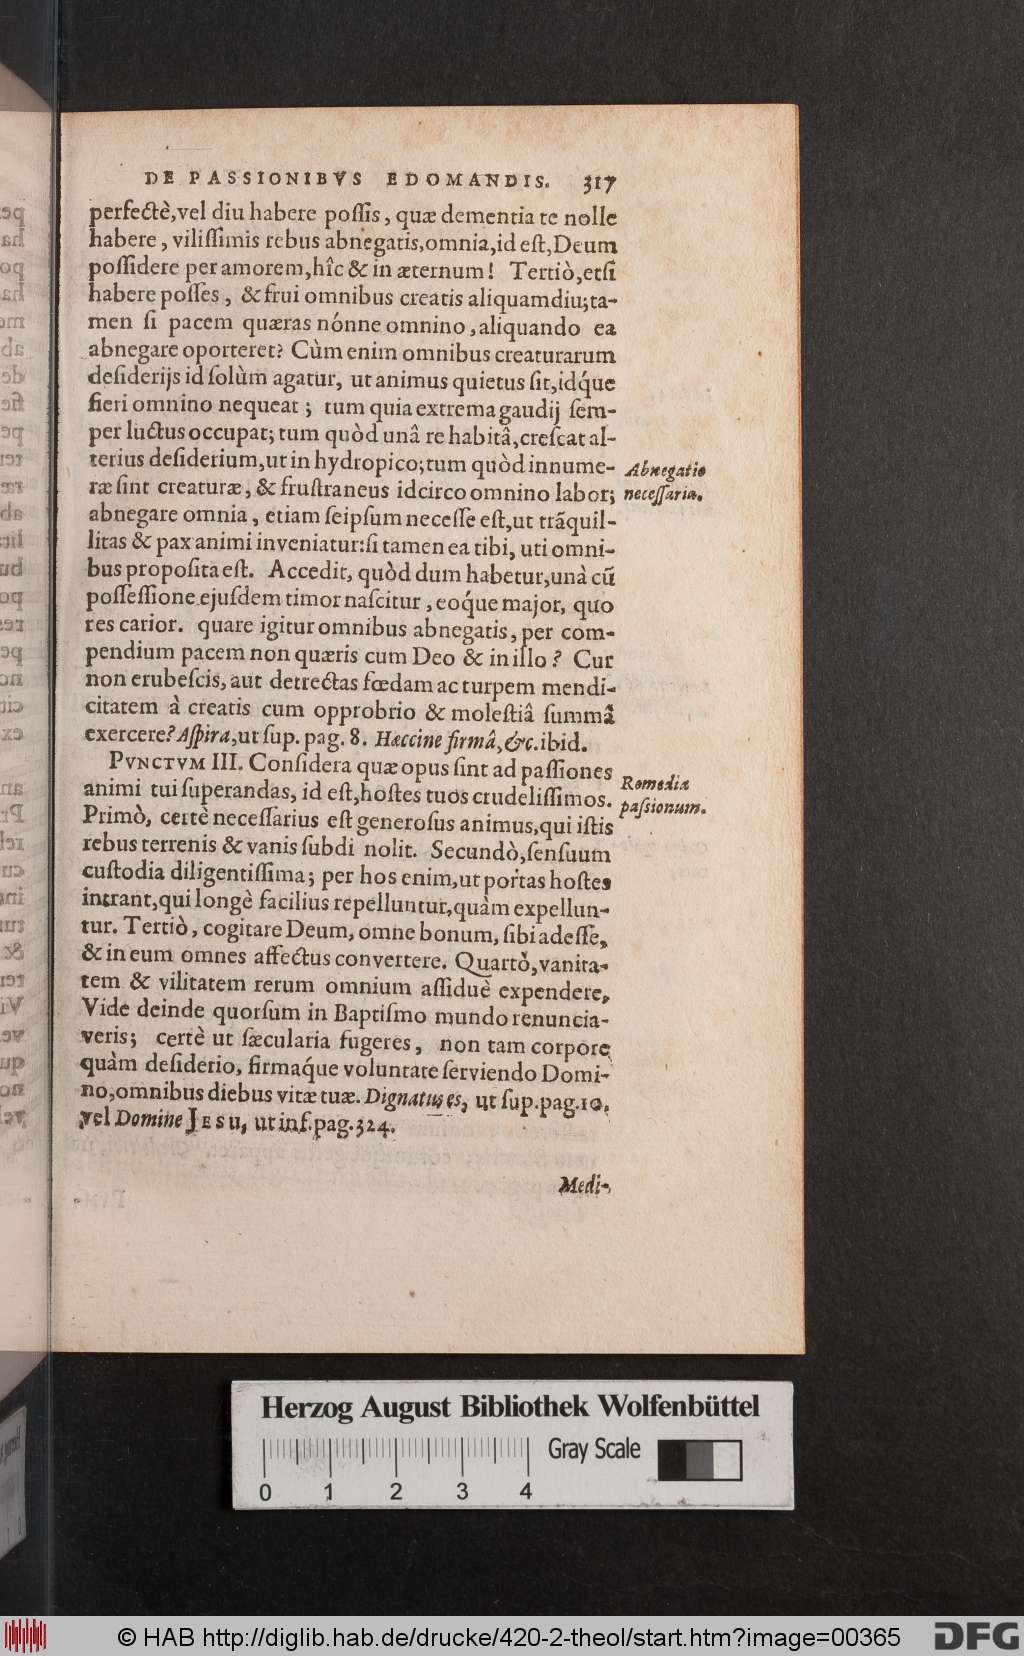 DE PASSIONIBVS EDOMANDIS. 317
perfectè, vel diu habere poſſis, quæ dementia te nolle
habere, viliſſimis rebus abnegatis, omnia, id eſt, Deum
poſſidere per amorem, hîc & in æternum! Tertiò, etſi
habere poſſes, & frui omnibus creatis aliquamdiu; ta-
men ſi pacem quæras nónne omnino, aliquando ea
abnegare oporteret? Cùm enim omnibus creaturarum
deſiderijs id ſolùm agatur, ut animus quietus ſit, idq́ue
fieri omnino nequeat; tum quia extrema gaudij ſem-
per luctus occupat; tum quòd unâ re habitâ, creſcat al-
terius deſiderium, ut in hydropico; tum quòd innume-
ræ ſint creaturæ, & fruſtraneus idcirco omnino labor;
Abnegatio
neceſſaria.
abnegare omnia, etiam ſeipſum neceſſe eſt, ut trãquil-
litas & pax animi inveniatur: ſi tamen ea tibi, uti omni-
bus propoſita eſt. Accedit, quòd dum habetur, unà cũ
poſſeſſione ejuſdem timor naſcitur, eoq́ue major, quo
res carior. quare igitur omnibus abnegatis, per com-
pendium pacem non quæris cum Deo & in illo? Cur
non erubeſcis, aut detrectas fœdam ac turpem mendi-
citatem à creatis cum opprobrio & moleſtiâ ſummâ
exercere? Aſpira, ut ſup. pag. 8. Hæccine firmâ, &c. ibid.
PVNCTVM III. Conſidera quæ opus ſint ad paſſiones
animi tui ſuperandas, id eſt, hoſtes tuos crudeliſſimos.
Remedia
paſsionum.
Primò, certè neceſſarius eſt generoſus animus, qui iſtis
rebus terrenis & vanis ſubdi nolit. Secundò, ſenſuum
cuſtodia diligentiſſima; per hos enim, ut portas hoſtes
intrant, qui longè facilius repelluntur, quàm expellun-
tur. Tertiò, cogitare Deum, omne bonum, ſibi adeſſe,
& in eum omnes affectus convertere. Quartò, vanita-
tem & vilitatem rerum omnium aſſiduè expendere,
Vide deinde quorſum in Baptiſmo mundo renuncia-
veris; certè ut ſæcularia fugeres, non tam corpore
quàm deſiderio, firmaq́ue voluntate ſerviendo Domi-
no, omnibus diebus vitæ tuæ. Dignatus es, ut ſup. pag. 10.
vel Domine JESU, ut inf. pag. 324.
Medi-
Herzog August Bibliothek Wolfenbüttel
Gray Scale
0 1 2 3 4
© HAB http://diglib.hab.de/drucke/420-2-theol/start.htm?image=00365
DFG